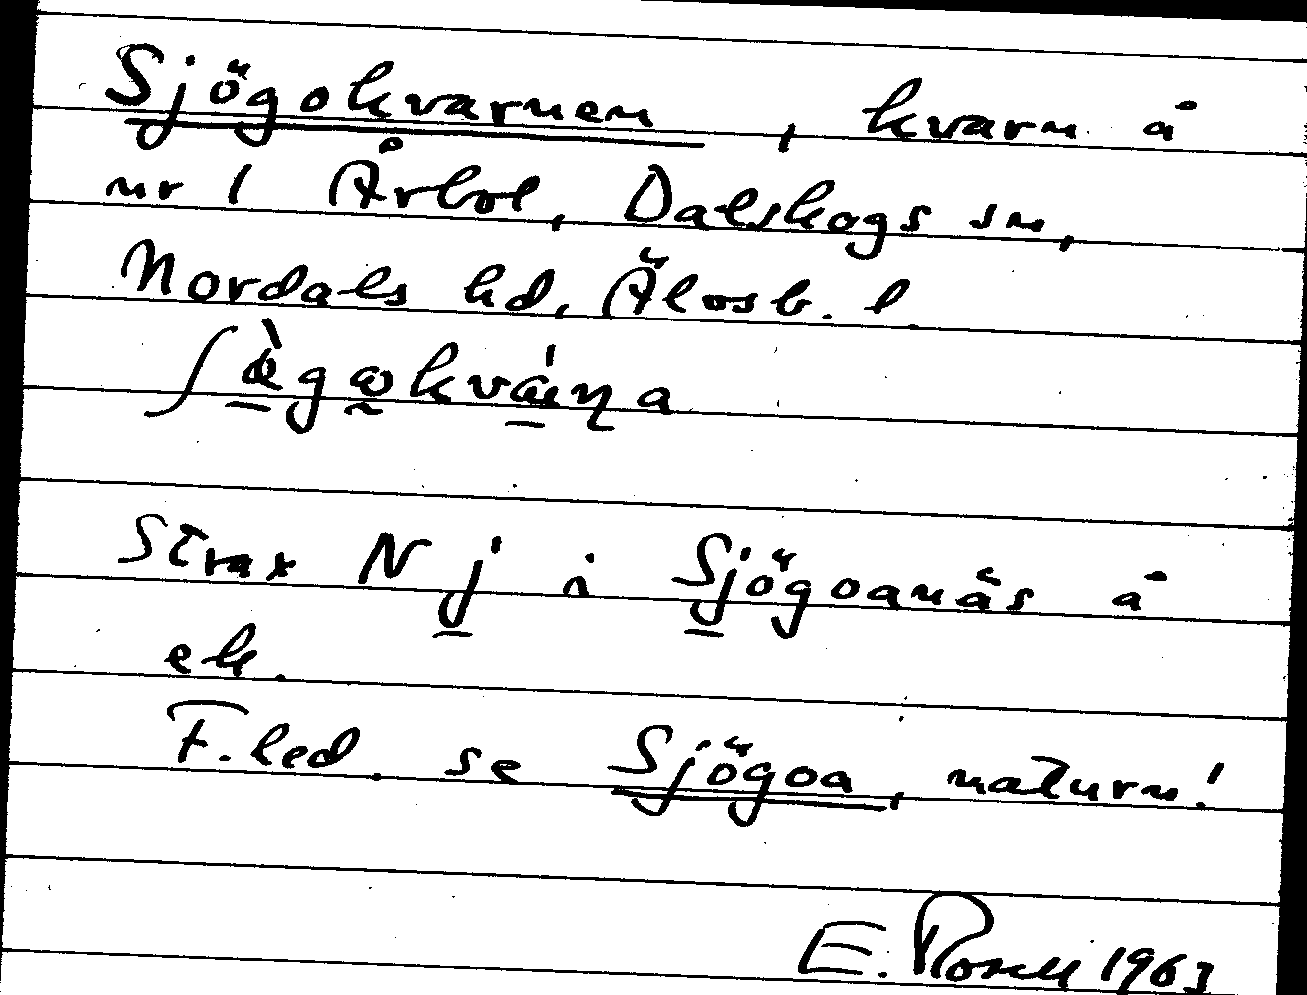 Sjögokvarnen, kvarn å
nr 1 Årbol, Dalskogs sn,
Nordals hd, Älvsb. l.
Strax N j i Sjögoanäs å
ek.
F.led. se Sjögoa, naturn!
E. 1963